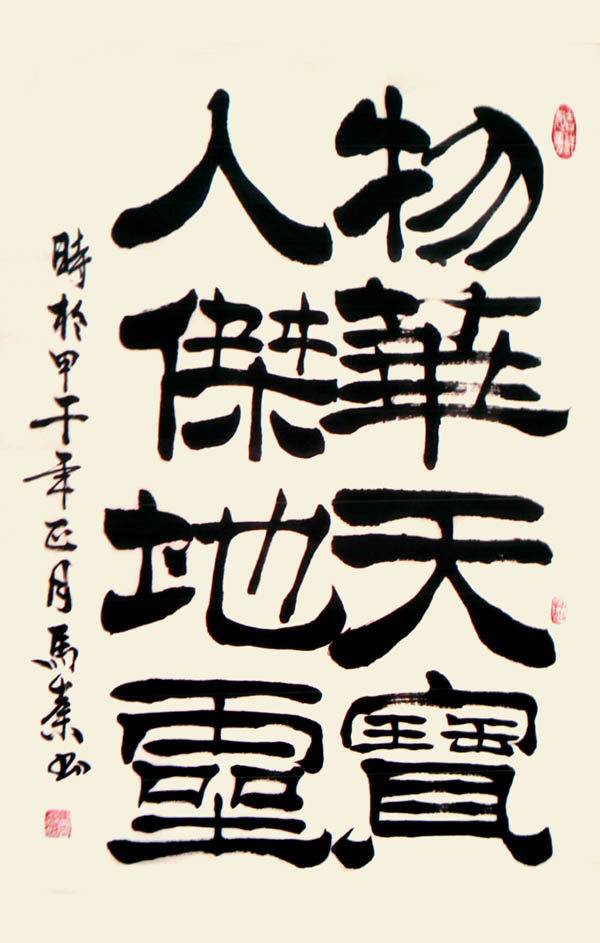 物華天寶
人傑地靈
時於甲午年正月馬书